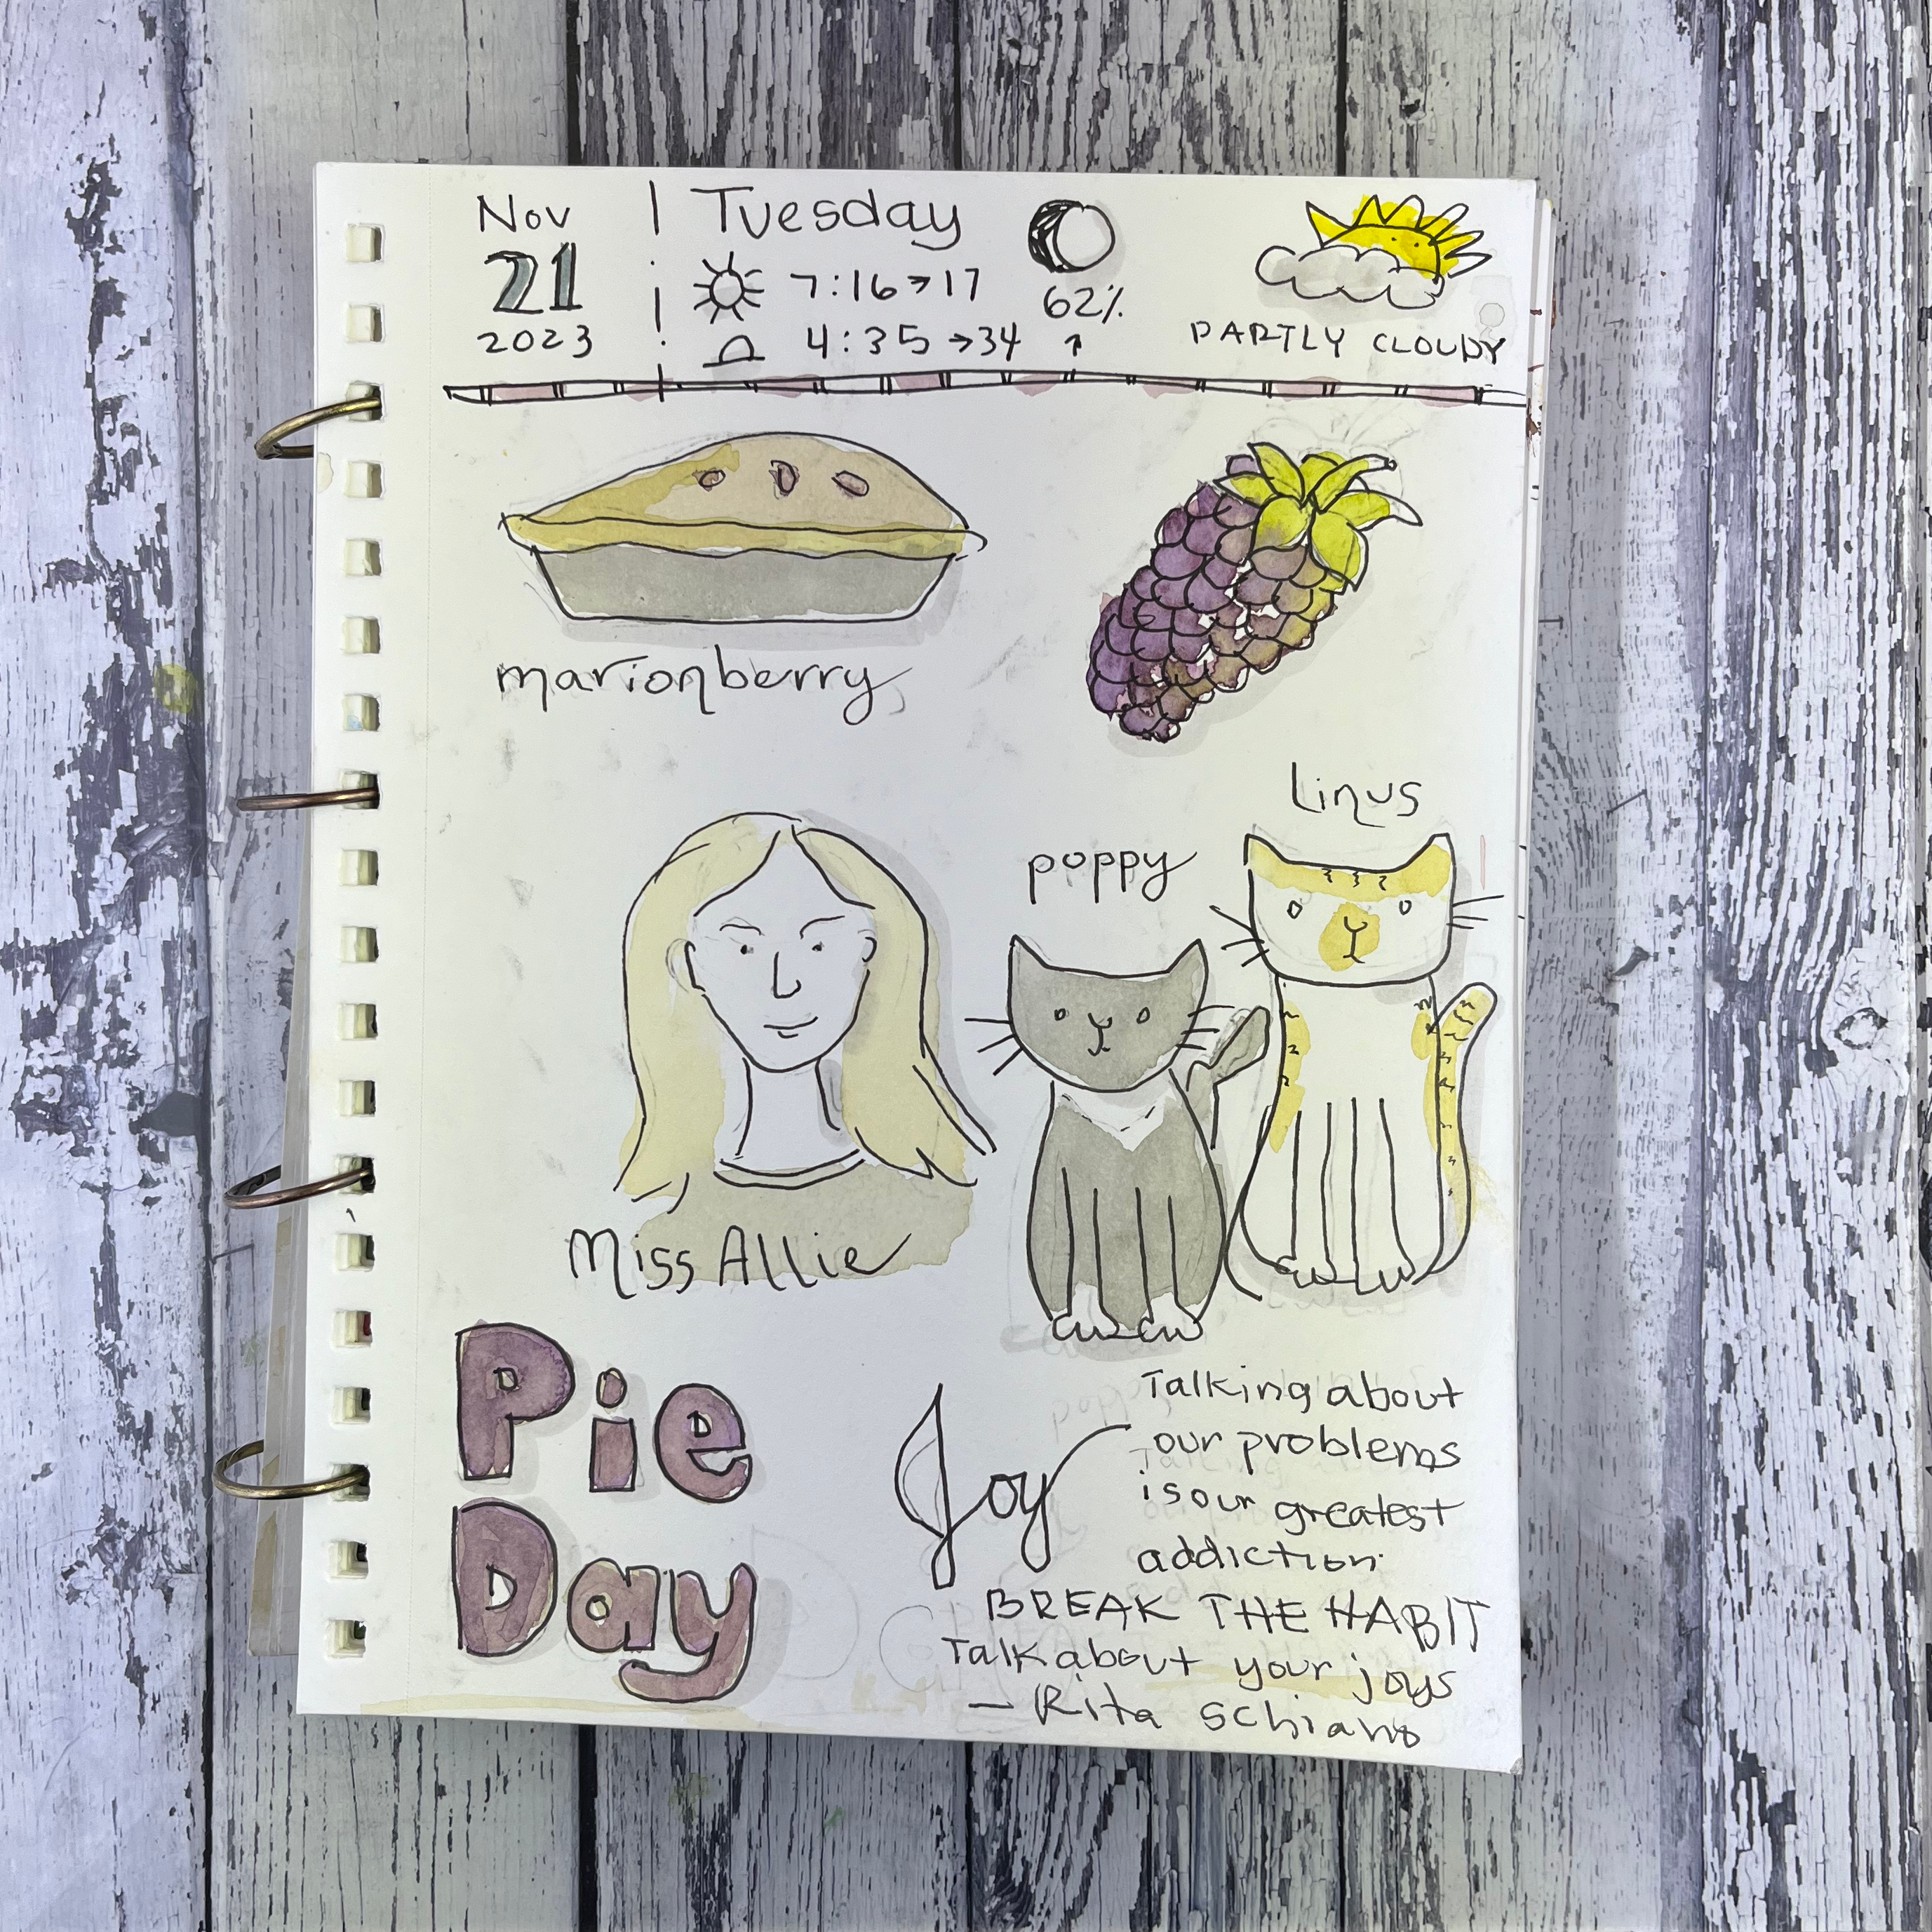 Nov
21
2023
Tuesday
7:16→17
4:35→34
62%
↑
PARTLY CLOUDY
marionberry
Linus
poppy
Miss Allie
Pie
Day
Joy
Talking about
our problems
is our greatest
addiction.
BREAK THE HABIT
Talk about your joys
— Rita Schiano